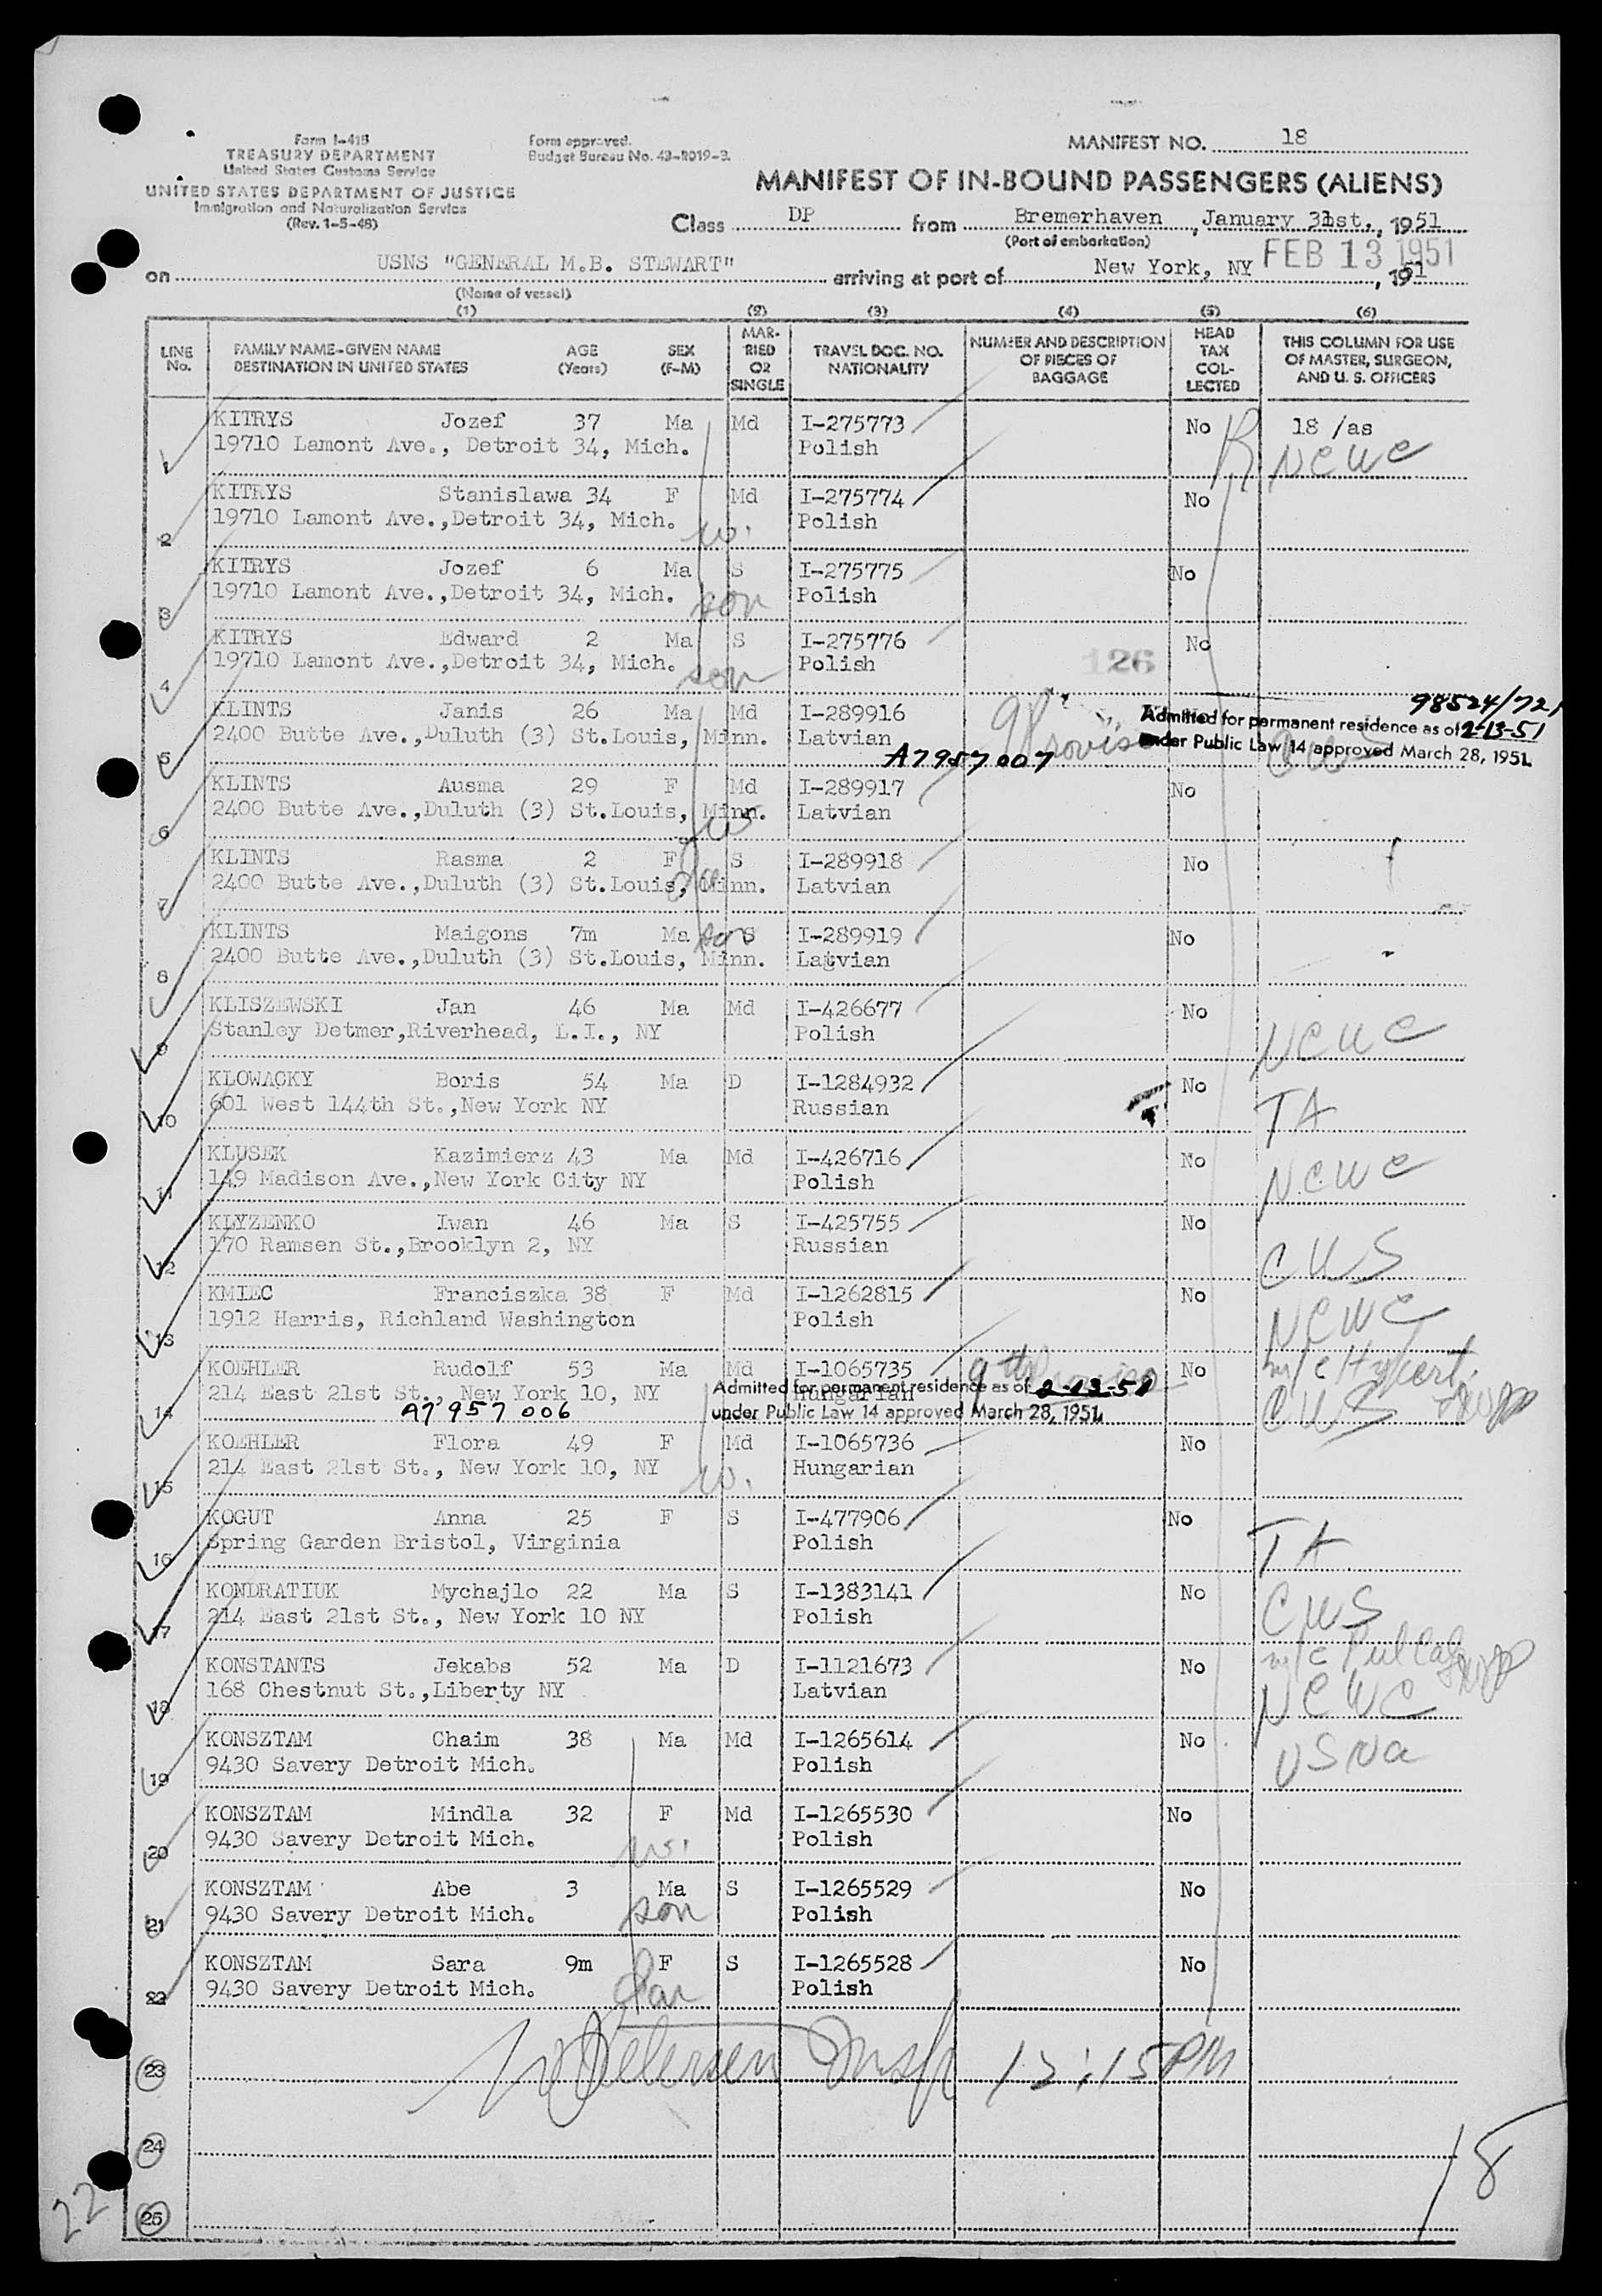 Form I-415
TREASURY DEPARTMENT
United States Customs Service
UNITED STATES DEPARTMENT OF JUSTICE
Immigration and Naturalization Service
(Rev. 1-5-48)
Form approved.
Budget Bureau No. 43-R019-3.
MANIFEST NO. 18
MANIFEST OF IN-BOUND PASSENGERS (ALIENS)
Class DP from Bremerhaven, January 31st., 1951
(Port of embarkation)
FEB 13 1951
on USNS "GENERAL M.B. STEWART" arriving at port of New York, NY, 1951
(Name of vessel)
(1) (2) (3) (4) (5) (6)
LINE No. FAMILY NAME-GIVEN NAME DESTINATION IN UNITED STATES AGE (Years) SEX (F-M) MARRIED OR SINGLE TRAVEL DOC. NO. NATIONALITY NUMBER AND DESCRIPTION OF PIECES OF BAGGAGE HEAD TAX COLLECTED THIS COLUMN FOR USE OF MASTER, SURGEON, AND U. S. OFFICERS
1 KITRYS Jozef 37 Ma Md I-275773 No 18 /as
19710 Lamont Ave., Detroit 34, Mich. Polish NCWC
2 KITRYS Stanislawa 34 F Md I-275774 No
19710 Lamont Ave.,Detroit 34, Mich. w. Polish
3 KITRYS Jozef 6 Ma S I-275775 No
19710 Lamont Ave.,Detroit 34, Mich. son Polish
4 KITRYS Edward 2 Ma S I-275776 No
19710 Lamont Ave.,Detroit 34, Mich. son Polish 126
98524/721
5 KLINTS Janis 26 Ma Md I-289916
Admitted for permanent residence as of 2-13-51
2400 Butte Ave.,Duluth (3) St.Louis, Minn. Latvian
under Public Law 14 approved March 28, 1951.
A7957007
6 KLINTS Ausma 29 F Md I-289917 No
2400 Butte Ave.,Duluth (3) St.Louis, Minn. w Latvian
7 KLINTS Rasma 2 F S I-289918 No
2400 Butte Ave.,Duluth (3) St.Louis, Minn. Latvian
8 KLINTS Maigons 7m Ma son S I-289919 No
2400 Butte Ave.,Duluth (3) St.Louis, Minn. Latvian
9 KLISZEWSKI Jan 46 Ma Md I-426677 No
Stanley Detmer,Riverhead, L.I., NY Polish NCWC
10 KLOWACKY Boris 54 Ma D I-1284932 No
601 West 144th St.,New York NY Russian TA
11 KLUSEK Kazimierz 43 Ma Md I-426716 No
149 Madison Ave.,New York City NY Polish NCWC
12 KLYZENKO Iwan 46 Ma S I-425755 No
170 Ramsen St.,Brooklyn 2, NY Russian CWS
13 KMIEC Franciszka 38 F Md I-1262815 No
1912 Harris, Richland Washington Polish NCWC
14 KOEHLER Rudolf 53 Ma Md I-1065735 No
214 East 21st St., New York 10, NY Hungarian CWS
Admitted for permanent residence as of 2-13-51
under Public Law 14 approved March 28, 1951.
A7957006
15 KOEHLER Flora 49 F Md I-1065736 No
214 East 21st St., New York 10, NY w. Hungarian
16 KOGUT Anna 25 F S I-477906 No
Spring Garden Bristol, Virginia Polish TA
17 KONDRATIUK Mychajlo 22 Ma S I-1383141 No
214 East 21st St., New York 10 NY Polish CWS
18 KONSTANTS Jekabs 52 Ma D I-1121673 No
168 Chestnut St.,Liberty NY Latvian NCWC
19 KONSZTAM Chaim 38 Ma Md I-1265614 No
9430 Savery Detroit Mich. Polish USNA
20 KONSZTAM Mindla 32 F Md I-1265530 No
9430 Savery Detroit Mich. w. Polish
21 KONSZTAM Abe 3 Ma S I-1265529 No
9430 Savery Detroit Mich. son Polish
22 KONSZTAM Sara 9m F S I-1265528 No
9430 Savery Detroit Mich. dau Polish
23 Insp 12:15 PM
24
25
22
18